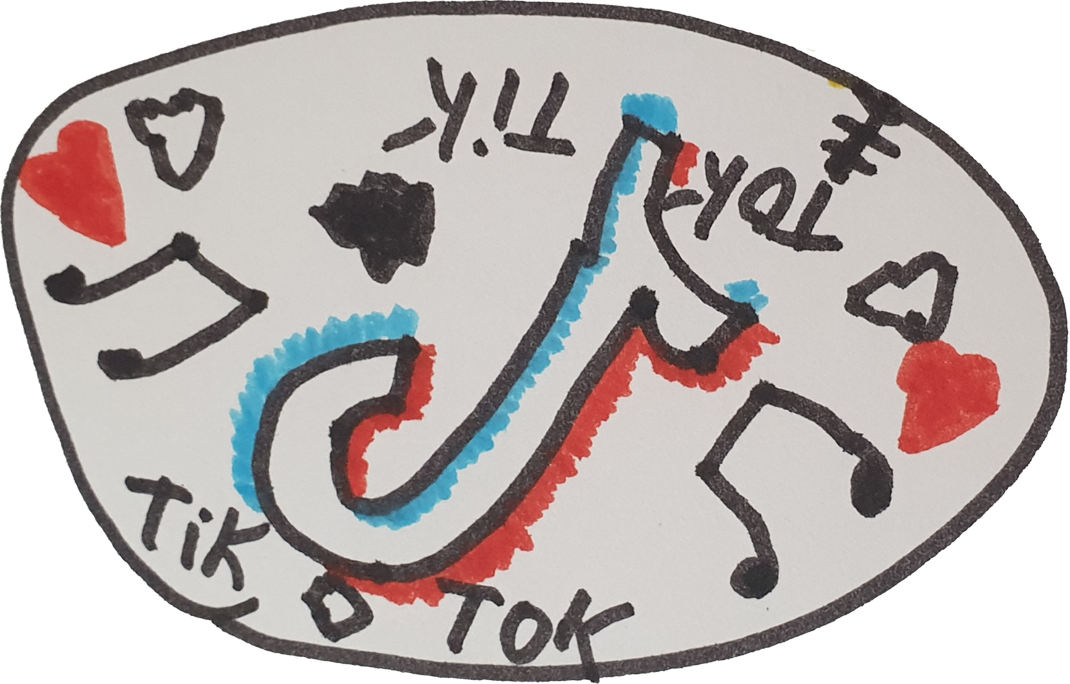 TiK
TOK
TiK
TOK